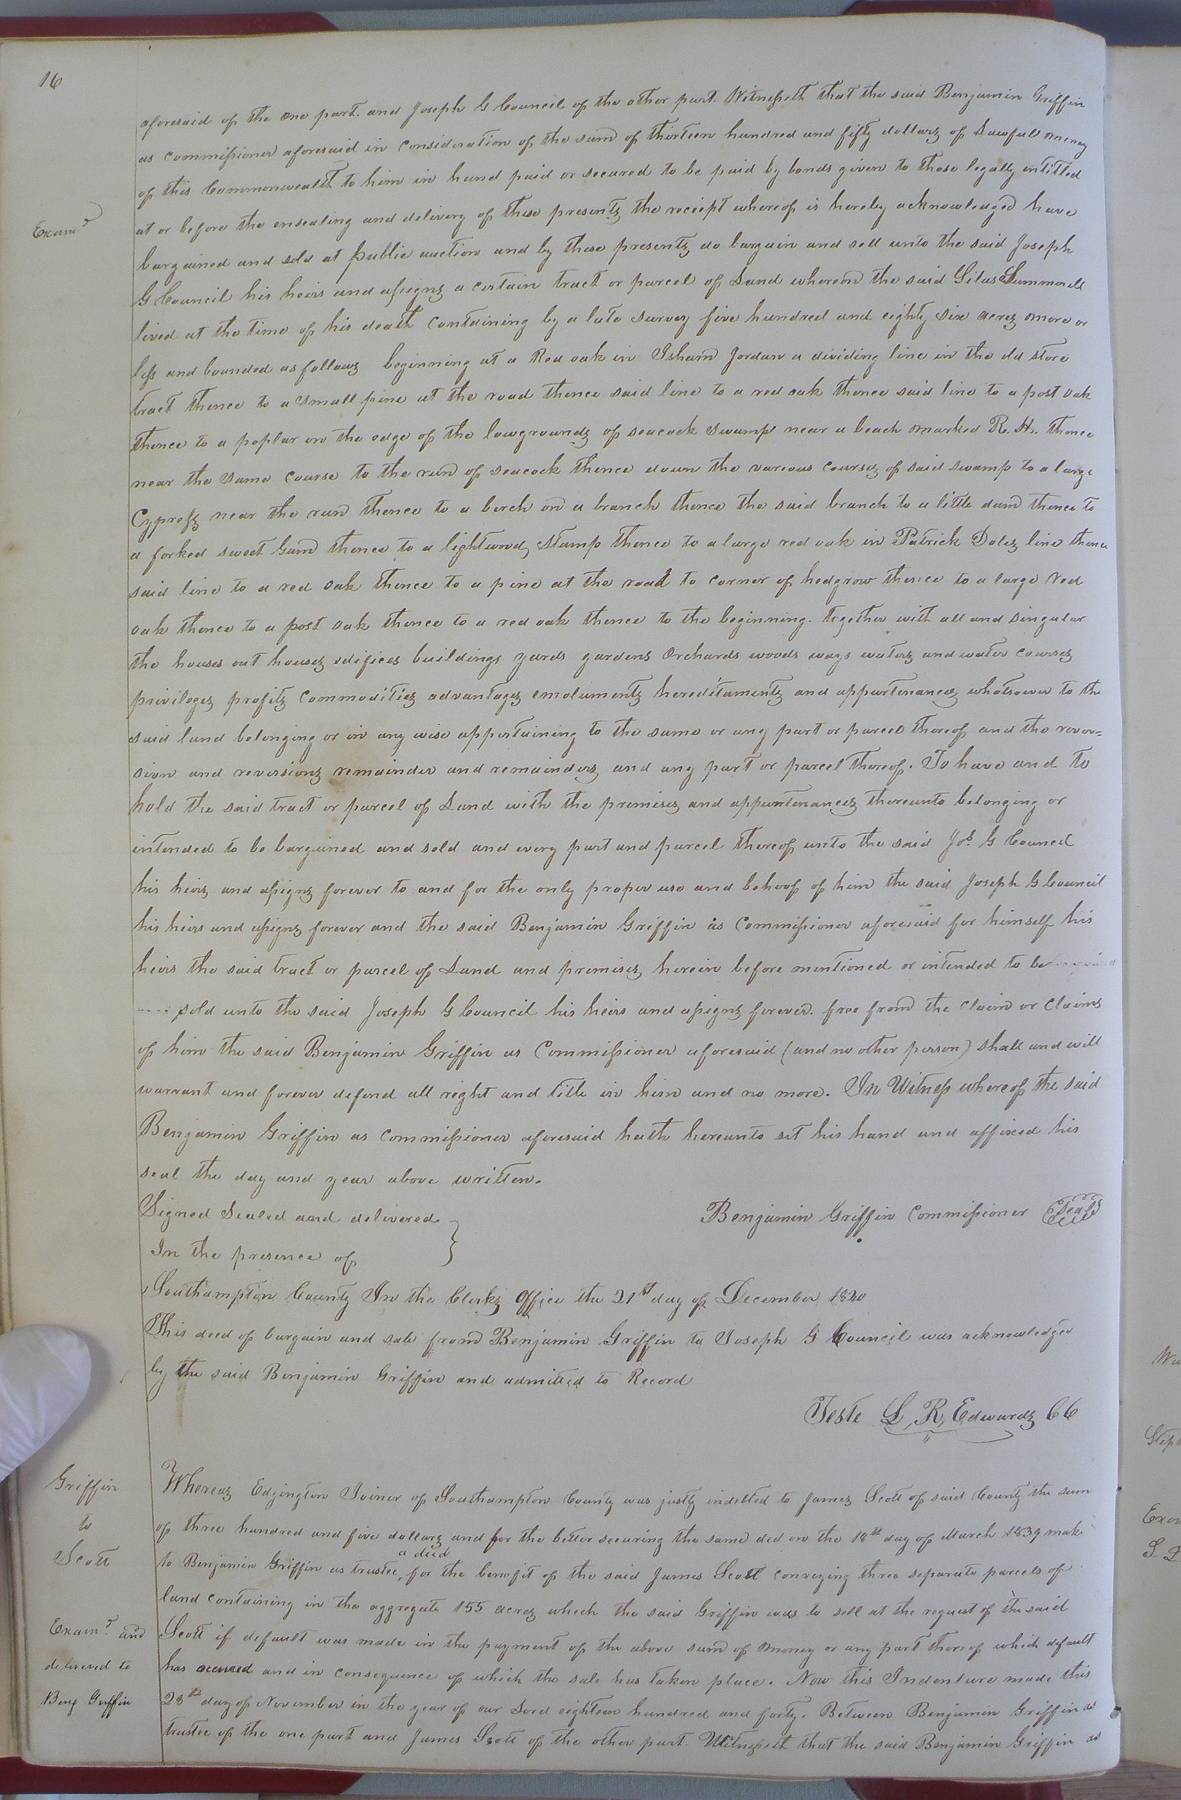 16
aforesaid of the one part. and Joseph G Council of the other part. Witnesseth that the said Benjamin Griffin
as commissioner aforesaid in consideration of the sum of thirteen hundred and fifty dollars of Lawfull money
of this Commonwealth to him in hand paid or secured to be paid by bonds given to those legally intitled
Exam.d
at or before the ensealing and delivery of these presents the reciept whereof is hereby acknowledged have
bargained and sold at public auction and by these presents do bargain and sell unto the said Joseph
G Council his heirs and assigns a certain tract or parcel of Land whereon the said Silas Summerell
lived at the time of his death containing by a late survey five hundred and eighty six acres more or
less and bounded as follows beginning at a Red oak in Isham Jordan a dividing line in the old store
tract thence to a small pine at the road thence said line to a red oak thence said line to a post oak
thence to a poplar on the edge of the lowgrounds of seacock swamp near a beach marked R. H. thence
near the same course to the run of seacock thence down the various courses of said swamp to a large
Cypress near the run thence to a berch on a branch thence the said branch to a little dam thence to
a forked sweet Gum thence to a lightwood Stump thence to a large red oak in Patrick Doles line thence
said line to a red oak thence to a pine at the road to corner of hedgrow thence to a large red
oak thence to a post oak thence to a red oak thence to the beginning. together with all and singular
the houses out houses edifices buildings yards gardens Orchards woods ways waters and water courses
privileges profits commodities advantages emoluments hereditaments and appurtenances whatsoever to the
said land belonging or in any wise appertaining to the same or any part or parcel thereof and the rever=
sion and reversions remainder and remainders and any part or parcel thereof. To have and to
hold the said tract or parcel of Land with the premises and appurtenances thereunto belonging or
intended to be bargained and sold and every part and parcel thereof unto the said Jos. G Council
his heirs and assigns forever to and for the only proper use and behoof of him the said Joseph G Council
his heirs and assigns forever and the said Benjamin Griffin as Commissioner aforesaid for himself his
heirs the said tract or parcel of Land and premises herein before mentioned or intended to be
sold unto the said Joseph G Council his heirs and assigns forever. free from the claim or claims
of him the said Benjamin Griffin as Commissioner aforesaid (and no other person) shall and will
warrant and forever defend all right and title in him and no more. In Witness whereof the said
Benjamin Griffin as commissioner aforesaid hath hereunto set his hand and affixed his
seal the day and year above written.
Signed Sealed and delivered }
Benjamin Griffin Commissioner Seal
In the presence of
Southampton County In the Clerks Office the 21st day of December 1840
This deed of bargain and sale from Benjamin Griffin to Joseph G Council was acknowledged
by the said Benjamin Griffin and admitted to Record
Teste L, R, Edwards CC
Griffin
to
Scott
Whereas Edgington Joiner of Southampton County was justly indetted to James Scott of said County the sum
of three hundred and five dollars and for the better securing the same did on the 18th day of March 1839 make
to Benjamin Griffin as trustee a deed for the benefit of the said James Scott conveying three separate parcels of
land containing in the aggregate 155 acres which the said Griffin was to sell at the request of the said
Exam.d and
delivered to
Benj Griffin
Scott if default was made in the payment of the above sum of money or any part thereof which default
has occurred and in consequence of which the sale has taken place. Now this Indenture made this
28th day of November in the year of our Lord eighteen hundred and forty. Between Benjamin Griffin as
trustee of the one part and James Scott of the other part. Witnesseth that the said Benjamin Griffin as